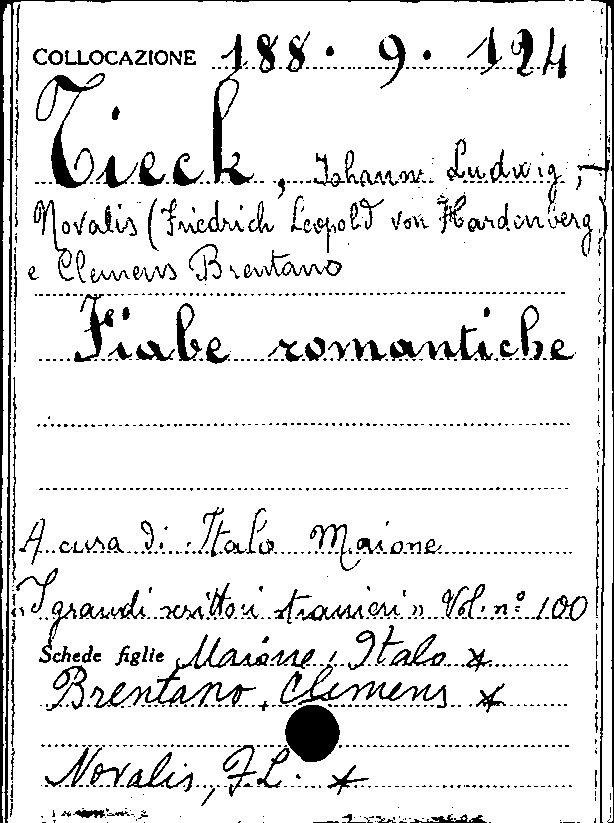 COLLOCAZIONE 188. 9. 124
Tieck, Johann Ludwig, -
Novalis (Friedrich Leopold von Hardenberg)
e Clemens Brentano
Fiabe romantiche
A cura di Italo Maione
"I grandi scrittori stranieri" Vol. n° 100
Schede figlie Maione, Italo *
Brentano, Clemens *
Novalis, F.L. *